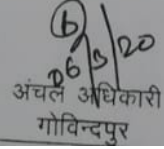 6
06/3/20
अंचल अधिकारी
गोविन्दपुर